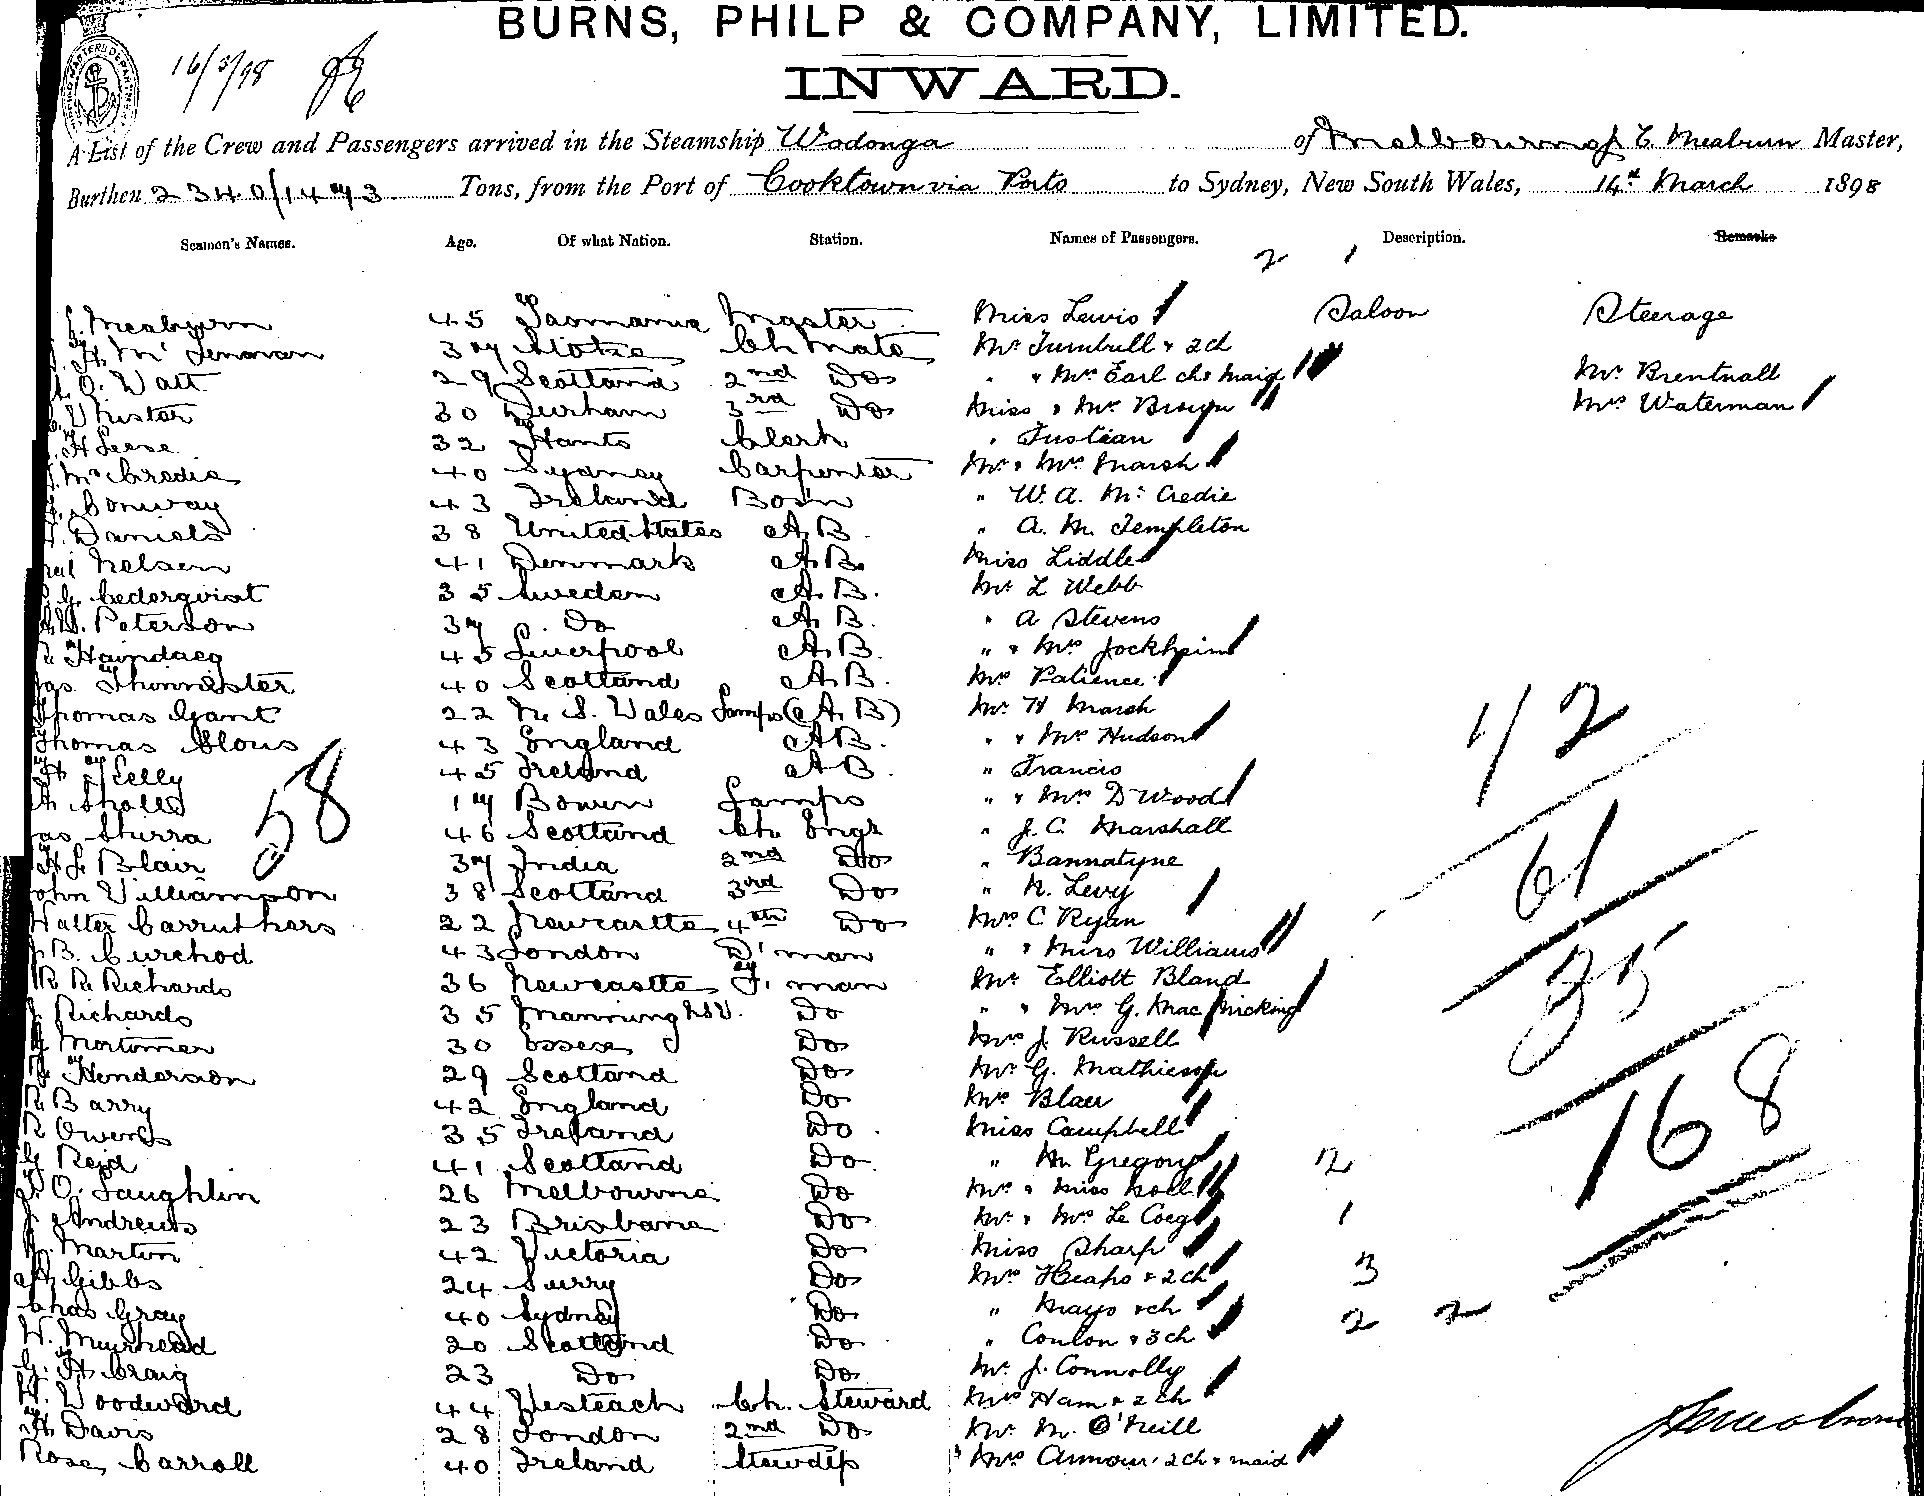 BURNS, PHILP & COMPANY, LIMITED.
INWARD.
16/3/98
A List of the Crew and Passengers arrived in the Steamship Wodonga of Melbourne J E Meaburn Master,
Burthen 2340/1473 Tons, from the Port of Cooktown via Ports to Sydney, New South Wales, 14th March 1898
Seamen's Names. Age. Of what Nation. Station. Names of Passengers. Description. Remarks
2 1
J. Meaburn 45 Tasmania Master Miss Lewis Saloon Steerage
37 Stoke Ch Mate Mr Turnbull & 2ch
O. Watt 29 Scotland 2nd Do " & Mrs Earl ch & maid Mr Brentnall
30 Durham 3rd Do Miss & Mr Mrs Waterman
H Leese 32 Hants Clerk " Tustian
McCredie 40 Sydney Carpenter Mr & Mrs Marsh
Conway 43 Ireland Bosn " W. A. McCredie
Daniels 38 United States A.B. " A. M. Templeton
Nelsen 41 Denmark A.B. Miss Liddle
G. Cederqvist 35 Sweden A.B. Mr L Webb
Peterson 37 Do A.B. " A Stevens
45 Liverpool A.B. " & Mrs
Jas. 40 Scotland A.B. Mrs Patience
Thomas Gant 22 N. S. Wales Lamps (A.B) Mr H Marsh
Thomas Clous 43 England A.B. " & Mrs Hudson
H Kelly 45 Ireland A.B. " Francis
17 Bowen Lamps " & Mrs D Wood
58
Jas Sturra 46 Scotland Ch. Engr " J. C. Marshall
H. J. Blair 37 India 2nd Do " Bannatyne
John Williamson 38 Scotland 3rd Do " N. Levy
Walter Carruthers 22 Newcastle 4th Do Mrs C Ryan
B. Curchod 43 London D'man " & Miss Williams
R. R. Richards 36 Newcastle F. man Mr Elliott Bland
J. Richards 35 Manning NSW. Do " & Mrs G. MacMicking
Mortimer 30 Essex Do Mrs J. Russell
Henderson 29 Scotland Do Mr G. Mathieson
R Barry 42 England Do Mrs Blair
R Owens 35 Ireland Do Miss Campbell
G Reid 41 Scotland Do " M. Gregory 2
J. O. Laughlin 26 Melbourne Do Mrs & Miss
J. Andrews 23 Brisbane Do Mr & Mrs Le 1
Martin 42 Victoria Do Miss Sharp
A Gibbs 24 Surry Do Mrs Heaps & 2 ch 3
Chas Gray 40 Sydney Do " Mayo & ch
W. Muirhead 20 Scotland Do " Conlon & 3 ch 2 2
G. H. Craig 23 Do Do Mr J. Connolly
H. Woodward 44 Ch. Steward Mrs Ham & 2 ch
H Davis 28 London 2nd Do Mr M. O'Neill
Rose Carroll 40 Ireland Stewdess Mrs Armour 2 ch & maid
42
61
35
168